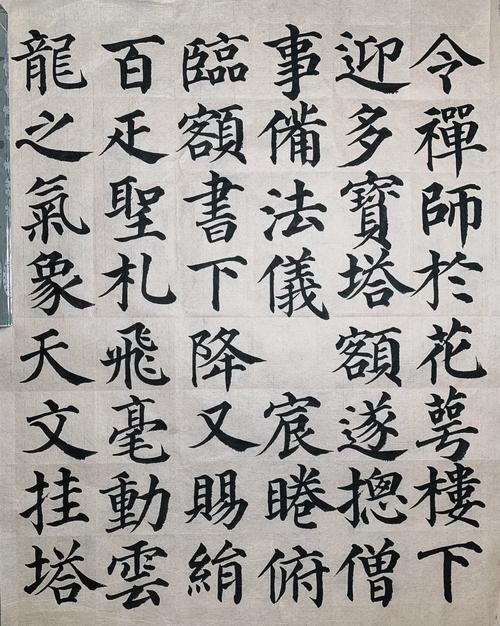 令禪師於花萼樓下
迎多寶塔額遂摠僧
事備法儀 宸睠俯
臨額書下降又賜絹
百疋聖札飛毫動雲
龍之氣象天文挂塔